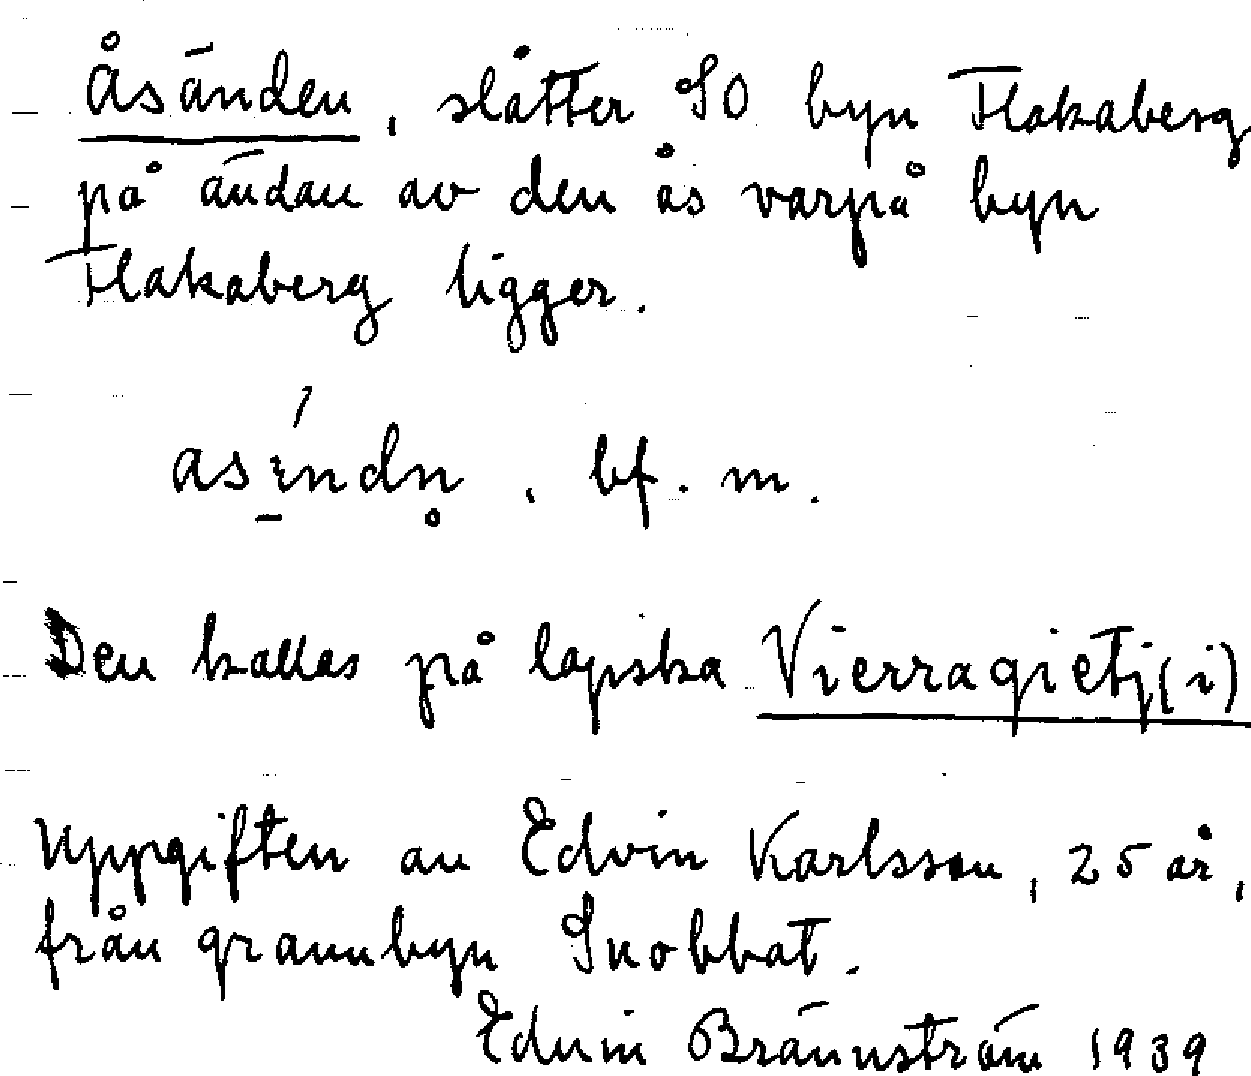 Åsänden, slåtter SO byn Flakaberg
på ändan av den ås varpå byn
Flakaberg ligger.
bf. m.
Den kallas på lapska Vierragietj(i)
Uppgiften av Edvin Karlsson, 25 år,
från grannbyn Snobbat.
Edvin Brännström 1939